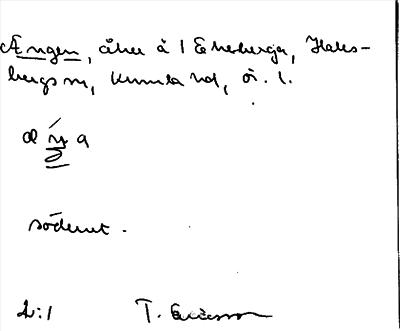 Ængen, åker å 1 Ekeberga, Hals-
bergs sn, Kumla hd, ör. l.
söderut.
2:1 T. Ericsson